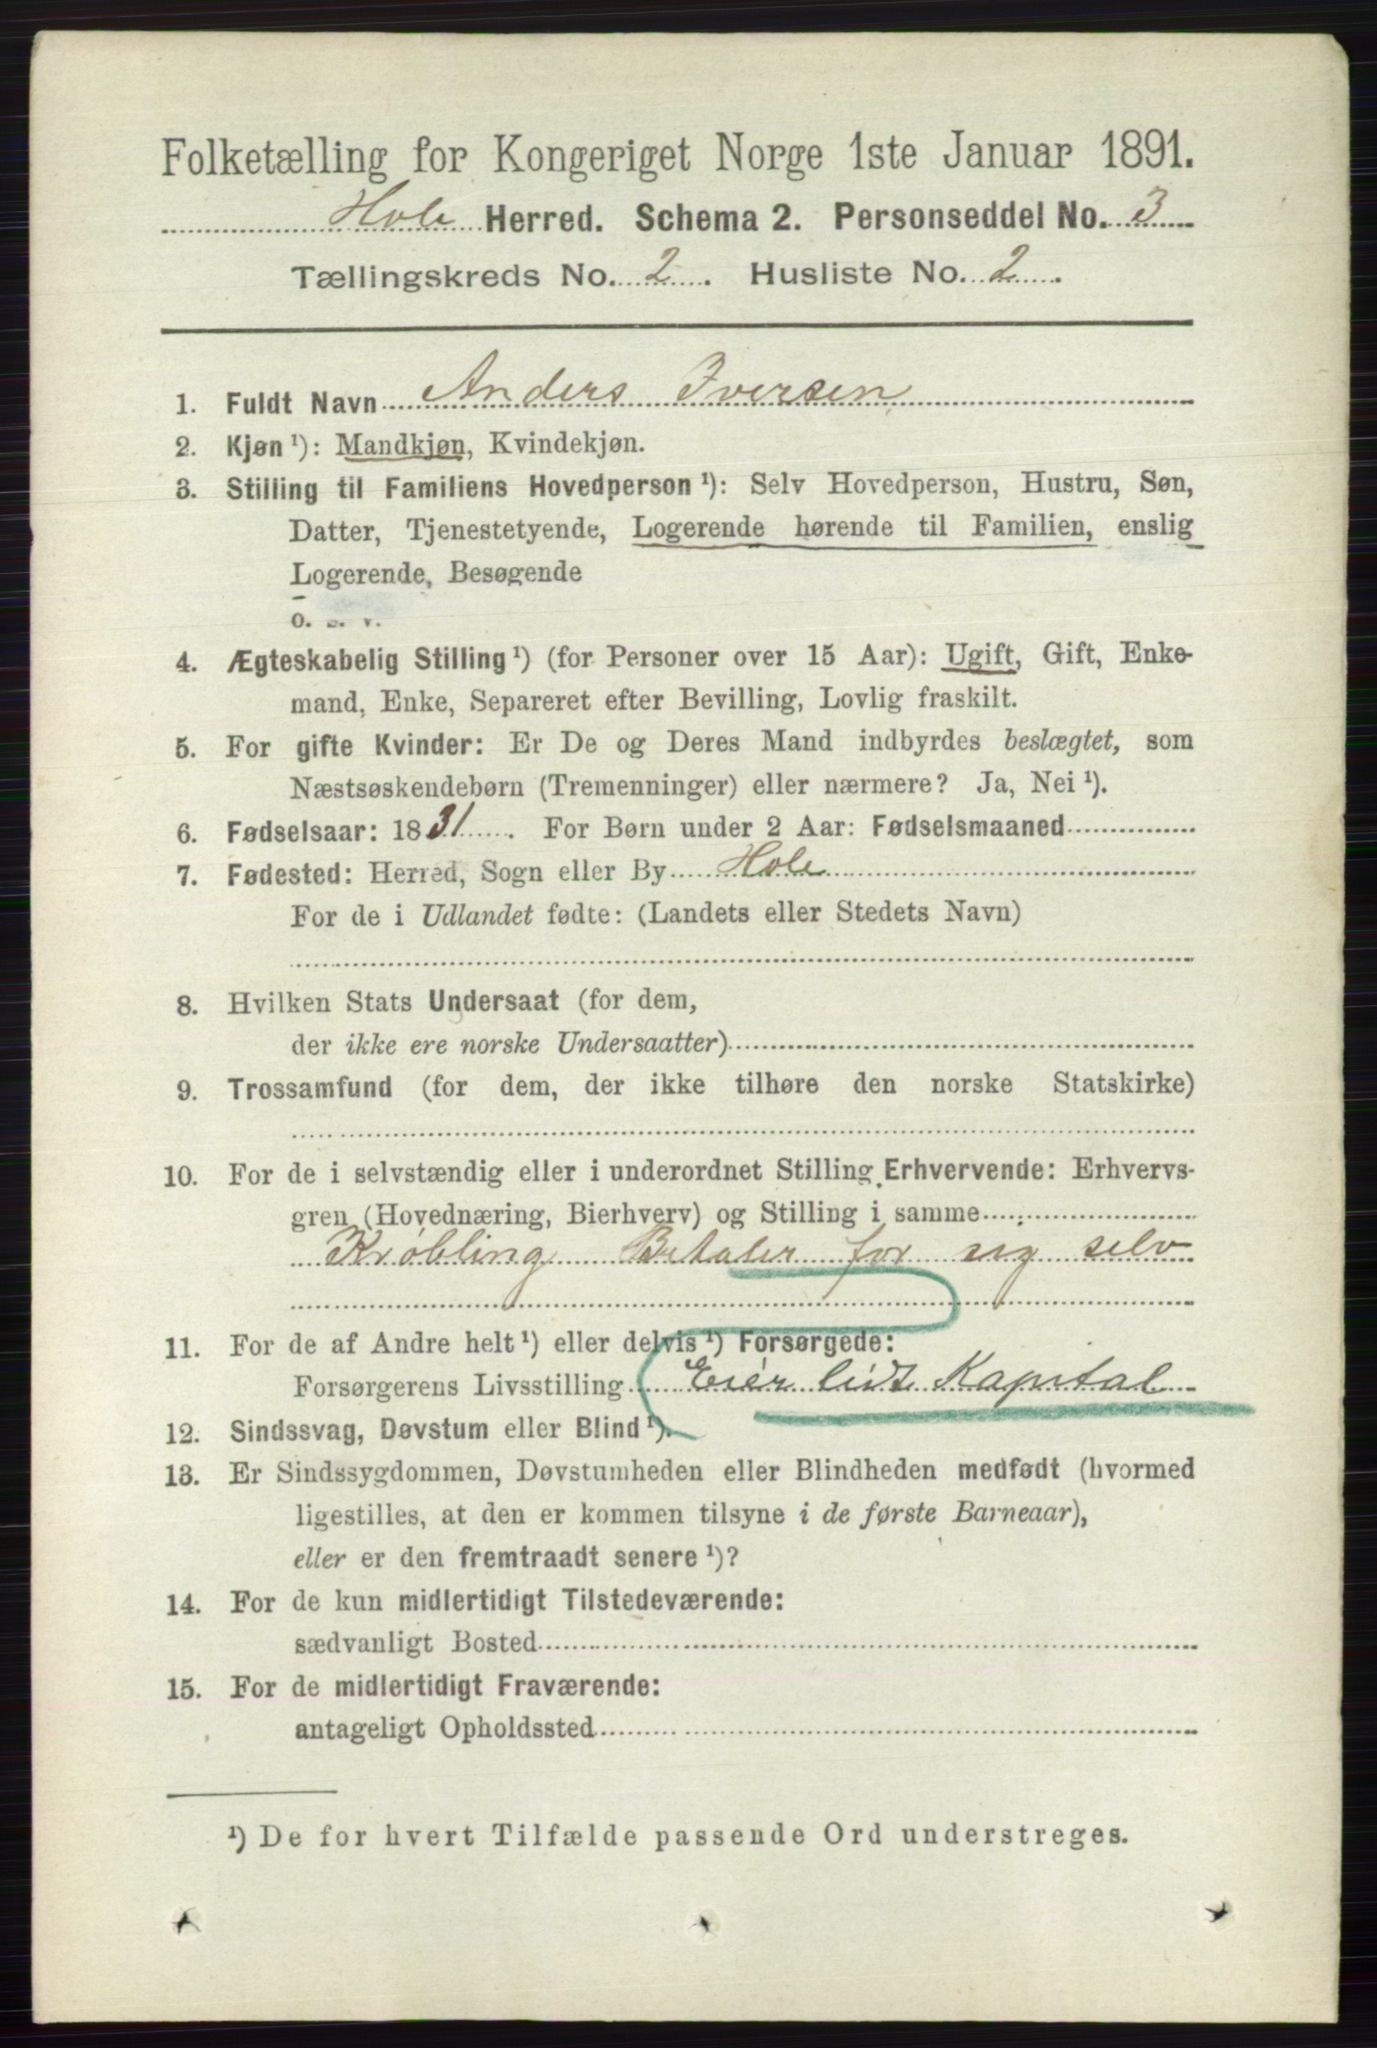 Folketælling for Kongeriget Norge 1ste Januar 1891.
Hole Herred. Schema 2. Personseddel No. 3
Tællingskreds No. 2. Husliste No. 2.
1. Fuldt Navn Anders Iversen
2. Kjøn ¹): Mandkjøn, Kvindekjøn.
3. Stilling til Familiens Hovedperson ¹): Selv Hovedperson, Hustru, Søn,
Datter, Tjenestetyende, Logerende hørende til Familien, enslig
Logerende, Besøgende
o. s. v.
4. Ægteskabelig Stilling ¹) (for Personer over 15 Aar): Ugift, Gift, Enke-
mand, Enke, Separeret efter Bevilling, Lovlig fraskilt.
5. For gifte Kvinder: Er De og Deres Mand indbyrdes beslægtet, som
Næstsøskendebørn (Tremenninger) eller nærmere? Ja, Nei ¹).
6. Fødselsaar: 1831. For Børn under 2 Aar: Fødselsmaaned
7. Fødested: Herred, Sogn eller By Hole
For de i Udlandet fødte: (Landets eller Stedets Navn)
8. Hvilken Stats Undersaat (for dem,
der ikke ere norske Undersaatter)
9. Trossamfund (for dem, der ikke tilhøre den norske Statskirke)
10. For de i selvstændig eller i underordnet Stilling Erhvervende: Erhvervs-
gren (Hovednæring, Bierhverv) og Stilling i samme
Krøbling Betaler for sig selv
11. For de af Andre helt ¹) eller delvis ¹) Forsørgede:
Forsørgerens Livsstilling Eier lidt Kapital
12. Sindssvag, Døvstum eller Blind ¹).
13. Er Sindssygdommen, Døvstumheden eller Blindheden medfødt (hvormed
ligestilles, at den er kommen tilsyne i de første Barneaar),
eller er den fremtraadt senere ¹)?
14. For de kun midlertidigt Tilstedeværende:
sædvanligt Bosted
15. For de midlertidigt Fraværende:
antageligt Opholdssted
¹) De for hvert Tilfælde passende Ord understreges.